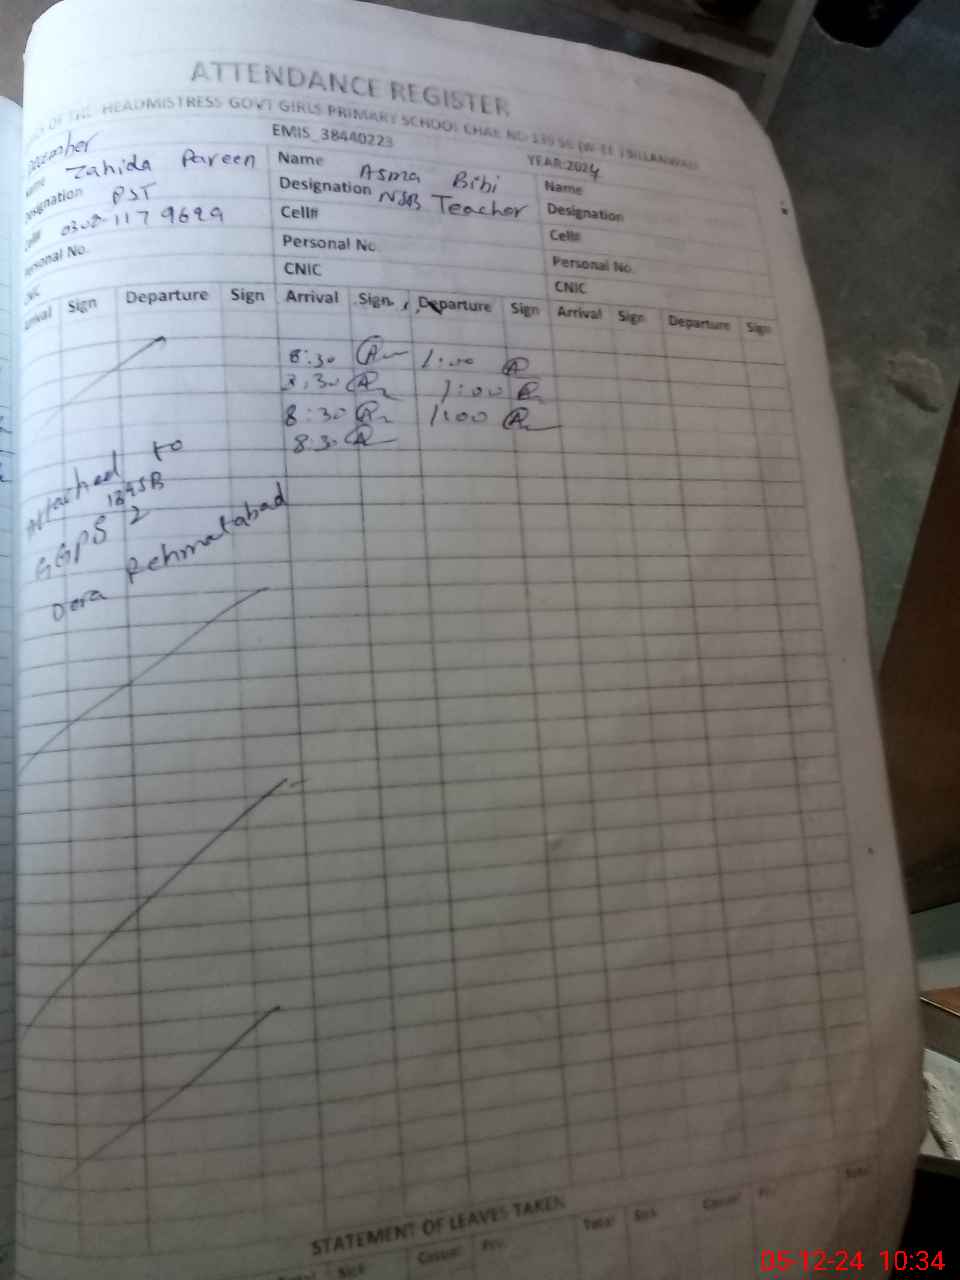 ATTENDANCE REGISTER
OF THE HEADMISTRESS GOVT GIRLS PRIMARY SCHOOL CHAK NO 139 SILLANWALI
EMIS_38440223
December
YEAR:2024
Name Zahida Parveen Name Asma Bibi Name
Designation PST Designation NSB Teacher Designation
Cell# Cell# Cell#
Personal No. Personal No. Personal No.
CNIC CNIC CNIC
Arrival Sign Departure Sign Arrival Sign Departure Sign Arrival Sign Departure Sign
8:30 1:00
8:30 1:00
8:30 1:00
8:30
Attached to
GGPS 2
Dera Rehmatabad
STATEMENT OF LEAVES TAKEN
Total Sick Casual Total
Sick Casual
05-12-24 10:34